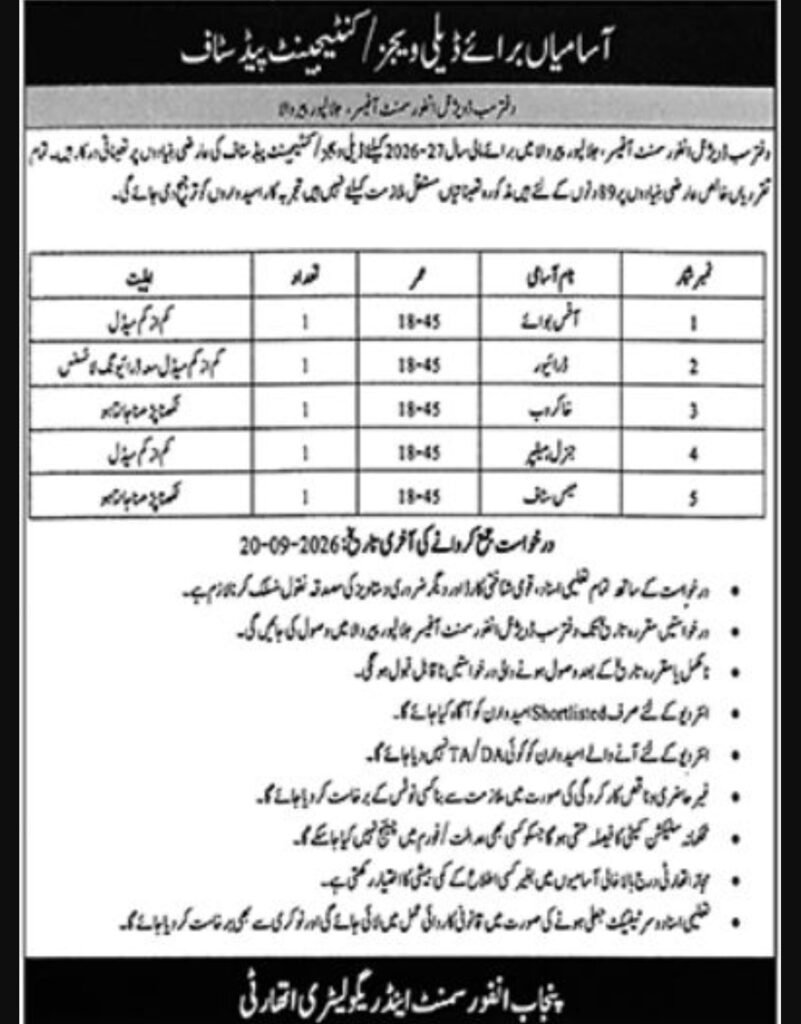 آسامیاں برائے ڈیلی ویجز/کنٹیجینٹ پیڈ سٹاف
دفتر سب ڈویژنل انفورسمنٹ آفیسر، جلالپور پیروالا
دفتر سب ڈویژنل انفورسمنٹ آفیسر، جلالپور پیروالا میں برائے مالی سال 27-2026 کیلئے ڈیلی ویجز/کنٹیجینٹ پیڈ سٹاف کی عارضی بنیادوں پر تعیناتی درکار ہیں۔ تمام
تقرریاں خالص عارضی بنیادوں پر 89 دنوں کے لئے ہیں مذکورہ تعیناتیاں مستقل ملازمت کیلئے نہیں ہیں تجربہ کار امیدواروں کو ترجیح دی جائے گی۔
نمبر شمار نام آسامی عمر تعداد اہلیت
1 آفس بوائے 18-45 1 کم از کم میڈل
2 ڈرائیور 18-45 1 کم از کم میڈل معہ ڈرائیونگ لائسنس
3 خاکروب 18-45 1 لکھنا پڑھنا جانتا ہو
4 جنرل ہیلپر 18-45 1 کم از کم میڈل
5 میس سٹاف 18-45 1 لکھنا پڑھنا جانتا ہو
درخواست جمع کروانے کی آخری تاریخ: 20-09-2026
• درخواست کے ساتھ تمام تعلیمی اسناد، قومی شناختی کارڈ اور دیگر ضروری دستاویز کی مصدقہ نقول منسلک کرنا لازم ہے۔
• درخواستیں مقررہ تاریخ تک دفتر سب ڈویژنل انفورسمنٹ آفیسر جلالپور پیروالا میں وصول کی جائیں گی۔
• نامکمل یا مقررہ تاریخ کے بعد وصول ہونے والی درخواستیں ناقابل قبول ہو گی۔
• انٹرویو کے لئے صرف Shortlisted امیدوارن کو آگاہ کیا جائے گا۔
• انٹرویو کے لئے آنے والے امیدوارن کو کوئی TA/DA نہیں دیا جائے گا۔
• غیر حاضری و ناقص کارکردگی کی صورت میں ملازمت سے بنا کسی نوٹس کے برخاست کر دیا جائے گا۔
• محکمانہ سلیکشن کمیٹی کا فیصلہ حتمی ہو گا جسکو کسی بھی عدالت/فورم میں چیلنج نہیں کیا جا سکے گا۔
• مجاز اتھارٹی درج بالا خالی آسامیوں میں بغیر کسی اطلاع کے کمی بیشی کا اختیار رکھتی ہے۔
• تعلیمی اسناد و سرٹیفکیٹ جعلی ہونے کی صورت میں قانونی کاروائی عمل میں لائی جائے گی اور نوکری سے بھی برخاست کر دیا جائے گا۔
پنجاب انفورسمنٹ اینڈ ریگولیٹری اتھارٹی